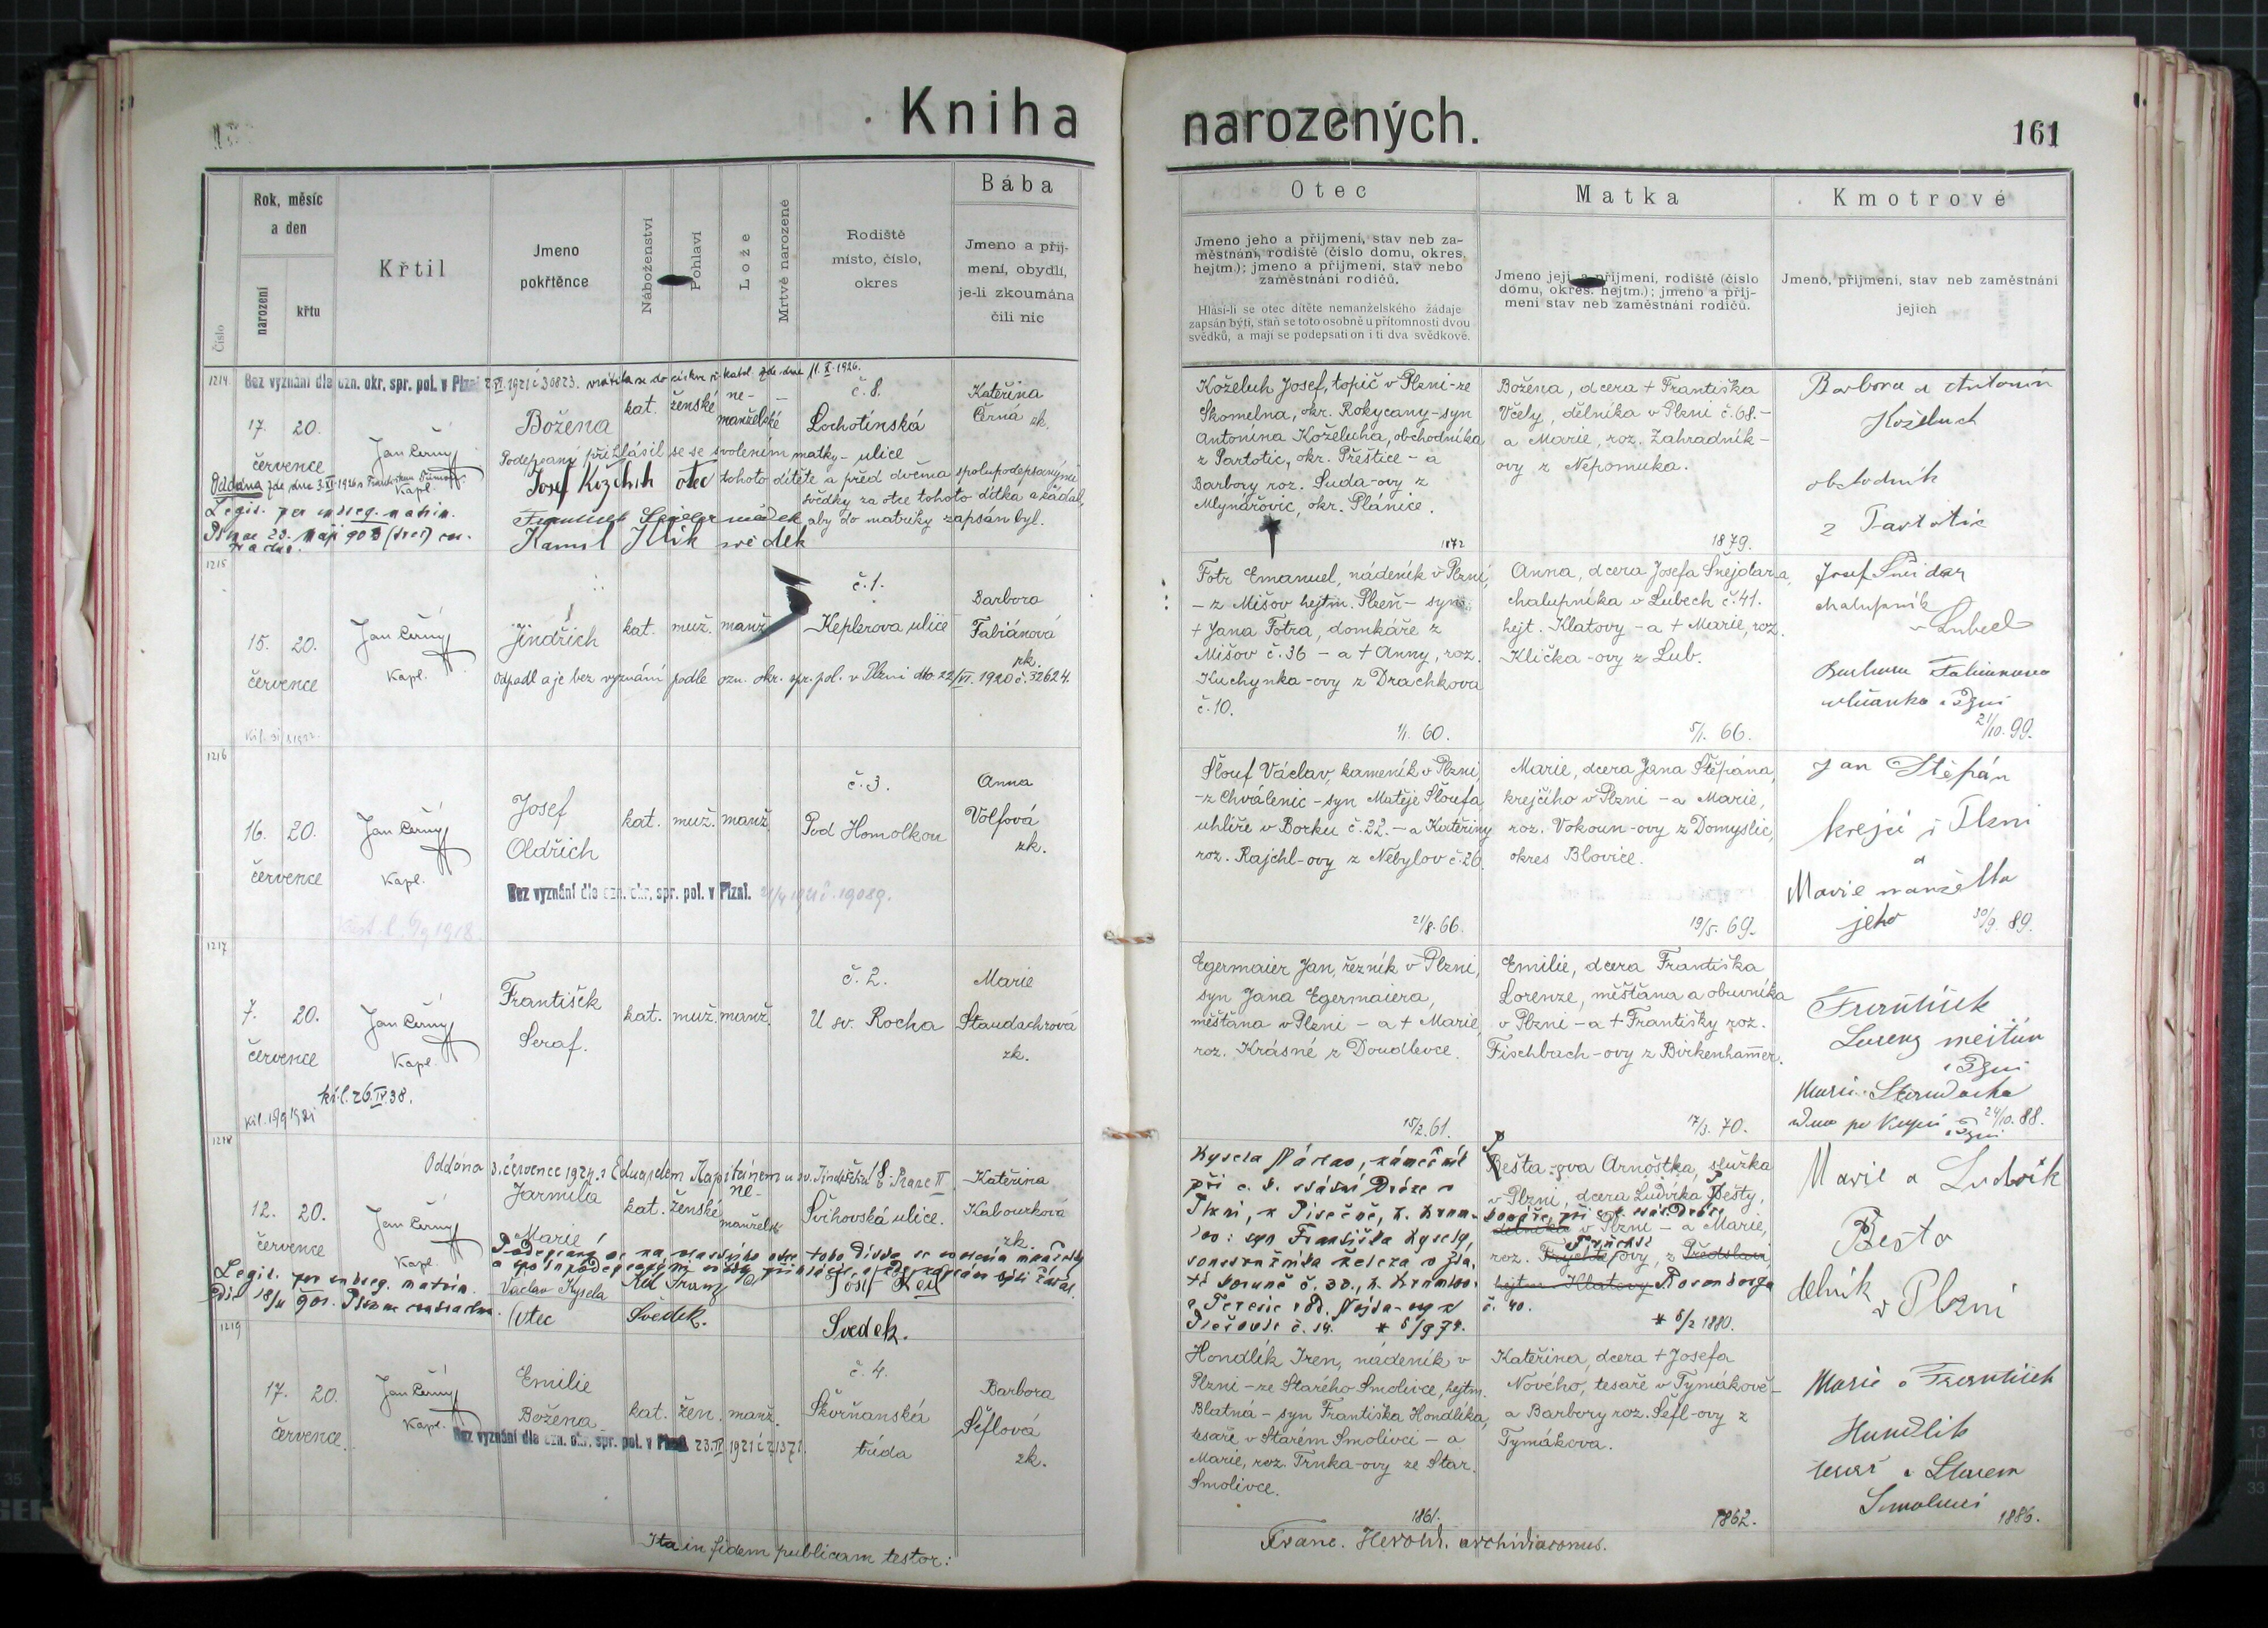 Kniha narozených.
161
Číslo
Rok, měsíc
a den
narození
křtu
Křtil
Jmeno
pokřtěnce
Náboženství
Pohlaví
Lože
Mrtvě narozené
Rodiště
místo, číslo,
okres
Bába
Jmeno a přij-
mení, obydlí,
je-li zkoumána
čili nic
Otec
Jmeno jeho a přijmení, stav neb za-
městnání, rodiště (číslo domu, okres.
hejtm.); jmeno a přijmení, stav nebo
zaměstnání rodičů.
Hlásí-li se otec dítěte nemanželského žádaje
zapsán býti, staň se toto osobně u přítomnosti dvou
svědků, a mají se podepsati on i ti dva svědkové.
Matka
Jmeno její a přijmení, rodiště (číslo
domu, okres. hejtm.); jmeno a přij-
mení stav neb zaměstnání rodičů.
Kmotrové
Jmeno, přijmení, stav neb zaměstnání
jejich
1214
Bez vyznání dle ozn. okr. spr. pol. v Plzni 1921 č 30823. vrátila se do církve ř. katol. zde dne 11. X. 1926.
17. 20.
července
Jan Černý
Kapl.
Božena
kat. ženské
ne-
manželské
č. 8.
Lochotínská
ulice
Kateřina
Černá
zk.
Podepsaný přihlásil se se svolením matky
Josef Koželuh otec tohoto dítěte a před dvěma spolupodepsanými
svědky za otce tohoto dítka a žádal,
aby do matriky zapsán byl.
Kamil svědek
Oddána zde dne 3. 1926
Legit. per subseq. matrim.
Koželuh Josef, topič v Plzni-ze
Skomelna, okr. Rokycany-syn
Antonína Koželuha, obchodníka
z Partotic, okr. Přeštice - a
Barbory roz. Suda-ovy z
Mlynářovic, okr. Plánice.
1872
Božena, dcera + Františka
Včely, dělníka v Plzni č. 68.-
a Marie, roz. Zahradník-
ovy z Nepomuka.
1879.
Barbora a Antonín
Koželuch
obchodník
z Partotic
1215
15. 20.
července
Jan Černý
Kapl.
Jindřich
kat. muž. manž.
č. 1.
Keplerova ulice
Barbora
Fabiánová
zk.
Odpadl a je bez vyznání podle ozn. okr. spr. pol. v Plzni dto 22/VI. 1920 č. 32624.
Fotr Emanuel, nádeník v Plzni,
- z Mišov hejtm. Plzeň - syn
+ Jana Fotra, domkáře z
Mišov č. 36 - a + Anny, roz.
Kuchynka-ovy z Drachkova
č. 10.
1/1. 60.
Anna, dcera Josefa Šnejdara,
chalupníka v Lubech č. 41.
hejt. Klatovy - a + Marie, roz.
Klička-ovy z Lub.
5/1. 66.
Josef Šneidar
chalupník
v Lubech
Barbora Fabianova
v Plzni
21/10. 99.
1216
16. 20.
července
Jan Černý
Kapl.
Josef
Oldřich
kat. muž. manž.
č. 3.
Pod Homolkou
Anna
Volfová
zk.
Bez vyznání dle ozn. okr. spr. pol. v Plzni. 1921 č. 19089.
Šlouf Václav, kameník v Plzni,
- z Chválenic - syn Matěje Šloufa,
uhlíře v Borku č. 22. - a Kateřiny
roz. Rajchl-ovy z Nebylov č. 26
21/8. 66.
Marie, dcera Jana Štěpána,
krejčího v Plzni - a Marie,
roz. Vokoun-ovy z Domyslic,
okres Blovice.
19/5. 69.
Jan Štěpán
krejčí v Plzni
a
Marie manželka
jeho 30/9. 89.
1217
7. 20.
července
Jan Černý
Kapl.
František
Seraf.
kat. muž. manž.
č. 2.
U sv. Rocha
Marie
Staudachrová
zk.
26. IV. 38.
Egermaier Jan, řezník v Plzni,
syn Jana Egermaiera,
měšťana v Plzni - a + Marie,
roz. Krásné z Doudlevce.
15/2. 61.
Emilie, dcera Františka
Lorenze, měšťana a obuvníka
v Plzni - a + Františky roz.
Fischbach-ovy z Birkenhamer.
17/3. 70.
František
Lorenz
24/10. 88.
1218
Oddána 3. července 1927 s Eduardem Kapitánem u sv. Jindřicha v Praze II.
12. 20.
července
Jan Černý
Kapl.
Jarmila
Marie
kat. ženské
ne-
manželsk
č. 8.
Švihovská ulice.
Kateřina
Kabourková
zk.
Legit. per subseq. matrim.
Václav Kysela
otec
Svědek.
Josef
Svedek.
Kysela Václav, zámečník
při c. k. státní Dráze v
Plzni,
syn Františka Kysely,
* 5/9 74.
Pešta-ova Arnoštka, služka
v Plzni, dcera Ludvíka Pešty,
v Plzni - a Marie,
roz.
Rosenberga
č. 40.
* 8/2 1880.
Marie a Ludvík
Besta
dělník
v Plzni
1219
17. 20.
července.
Jan Černý
Kapl.
Emilie
Božena
kat. žen. manž.
č. 4.
Skvrňanská
třída
Barbora
Šéflová
zk.
Bez vyznání dle ozn. okr. spr. pol. v Plzni 23. IV 1921 č 21371.
Hondlík Iren, nádeník v
Plzni - ze Starého Smolivce, hejtm.
Blatná - syn Františka Hondlíka,
tesaře v Starém Smolivci - a
Marie, roz. Trnka-ovy ze Star.
Smolivce.
1861.
Kateřina, dcera + Josefa
Nového, tesaře v Tymákově -
a Barbory roz. Šéfl-ovy z
Tymákova.
1862.
Marie a František
Hundlik
tesař v Starem
Smolivci 1886.
Ita in fidem publicam testor:
Franc. Herold. archidiaconus.